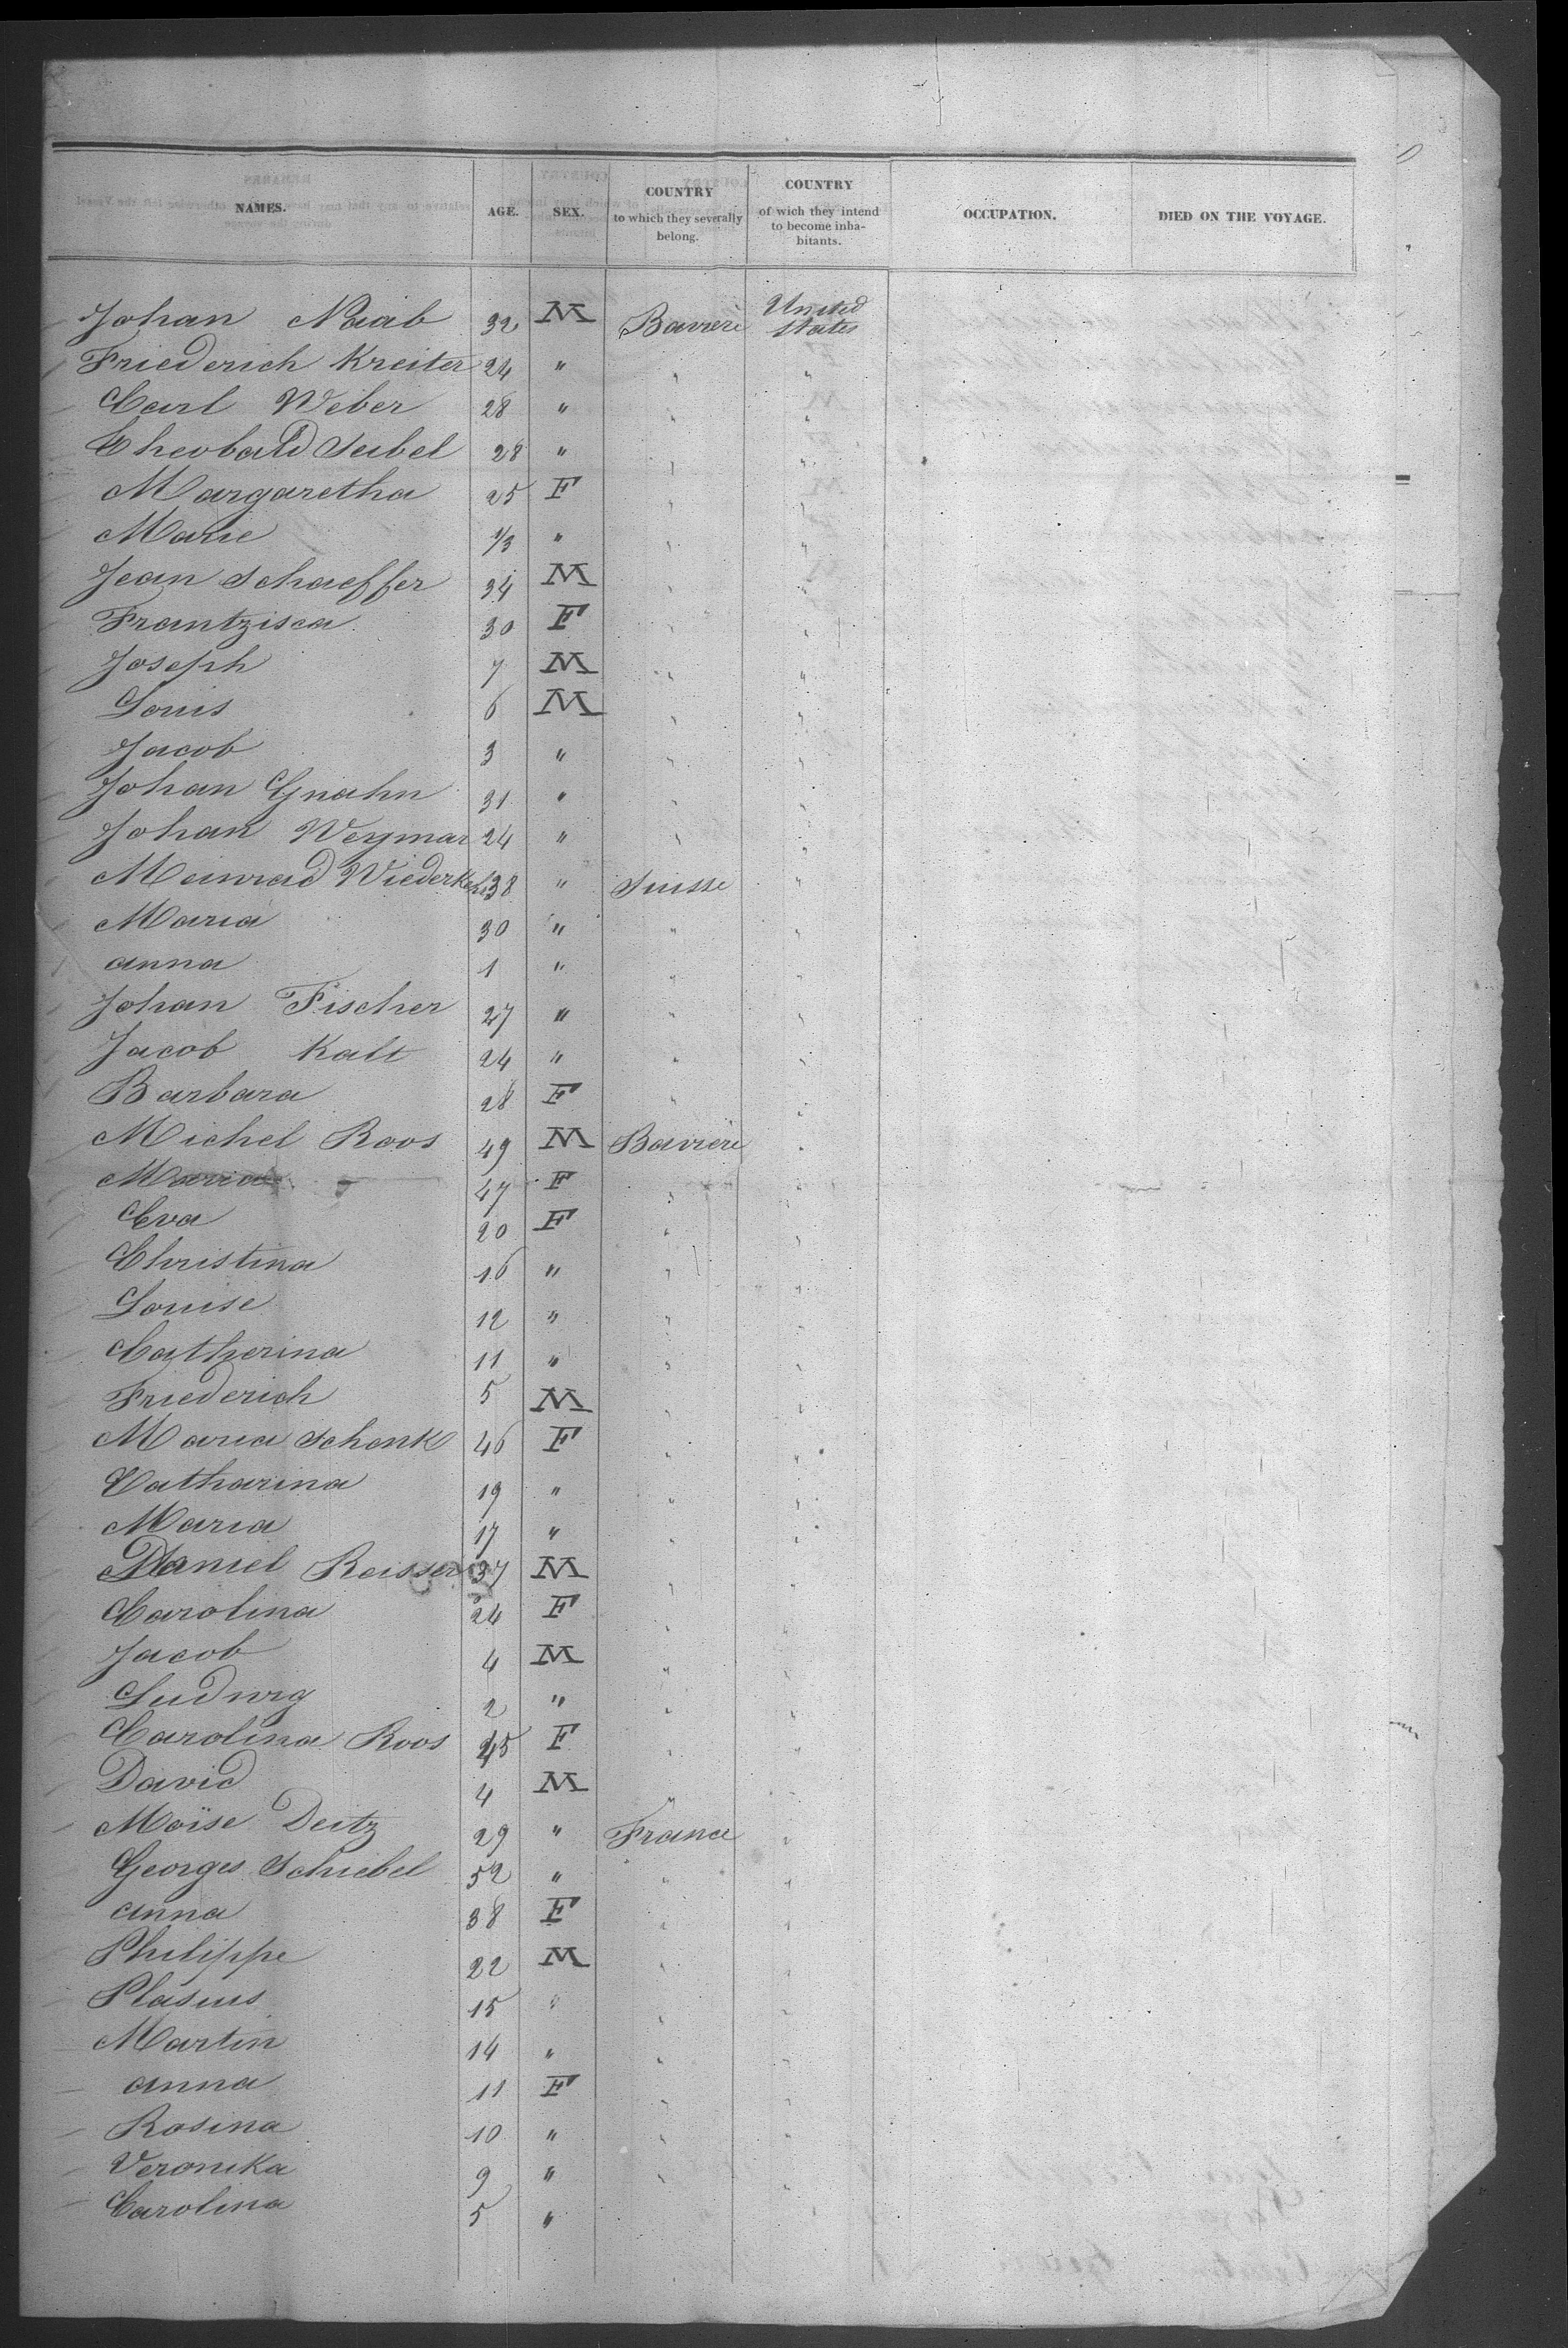 NAMES. AGE. SEX. COUNTRY to which they severally belong. COUNTRY of wich they intend to become inhabitants. OCCUPATION. DIED ON THE VOYAGE.
Johan Naab 32 M Baviere United States
Friederich Kreiter 24 " " "
Carl Weber 28 " " "
Theobald Seibel 28 " " "
Margaretha 25 F " "
Marie 1/3 " " "
Jean Schaeffer 34 M " "
Frantzisca 30 F " "
Joseph 7 M " "
Louis 6 M " "
Jacob 3 " " "
Johan Gnahn 31 " " "
Johan Weymar 24 " " "
Meinrad Wiederkehr 38 " Suisse "
Maria 30 " " "
anna 1 " " "
Johan Fischer 27 " " "
Jacob Kalt 24 " " "
Barbara 28 F " "
Michel Roos 49 M Baviere "
Maria 47 F " "
Eva 20 F " "
Christina 16 " " "
Louise 12 " " "
Catherina 11 " " "
Friederich 5 M " "
Maria Schenk 46 F " "
Catharina 19 " " "
Maria 17 " " "
Daniel Reisser 37 M " "
Carolina 24 F " "
Jacob 4 M " "
Ludwig 2 " " "
Carolina Roos 45 F " "
David 4 M " "
Moïse Deitz 29 " France "
Georges Schiebel 52 " " "
anna 38 F " "
Philippe 22 M " "
Plasius 15 " " "
Martin 14 " " "
anna 11 F " "
Rosina 10 " " "
Veronika 9 " " "
Carolina 5 "